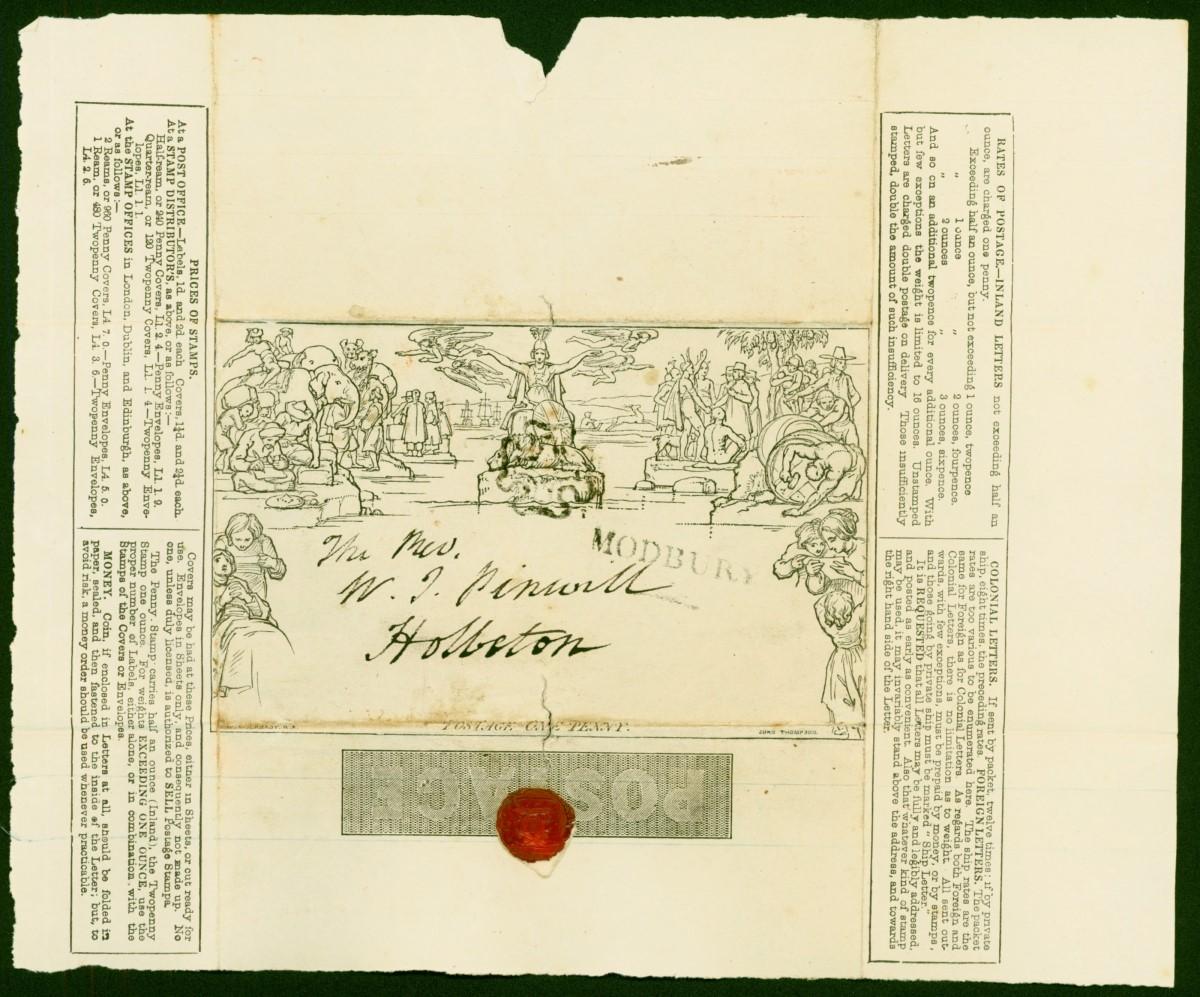 At a POST OFFICE.—Labels, 1d. and 2d. each. Covers, 1¼d. and 2¼d. each.
PRICES OF STAMPS.
At a STAMP DISTRIBUTOR'S, as above, or as follows:—
Half-ream, or 240 Penny Covers, L1. 2. 4.—Penny Envelopes, L1. 1. 9.
Quarter-ream, or 120 Twopenny Covers, L1. 1. 4.—Twopenny Enve-
lopes, L1. 1. 1
At the STAMP OFFICES in London, Dublin, and Edinburgh, as above,
or as follows:—
2 Reams, or 960 Penny Covers, L4. 7. 0.—Penny Envelopes, L4. 5. 0.
1 Ream, or 480 Twopenny Covers, L4. 3. 6.—Twopenny Envelopes,
L4. 2. 6.
Covers may be had at these Prices, either in Sheets, or cut ready for
use. Envelopes in Sheets only, and consequently not made up. No
one, unless duly licensed, is authorized to SELL Postage Stamps.
The Penny Stamp carries half an ounce (Inland), the Twopenny
Stamp one ounce. For weights EXCEEDING ONE OUNCE, use the
proper number of Labels, either alone, or in combination with the
Stamps of the Covers or Envelopes.
MONEY. Coin, if enclosed in Letters at all, should be folded in
paper, sealed, and then fastened to the inside of the Letter; but, to
avoid risk, a money order should be used whenever practicable.
The Rev.
MODBURY
W. J. Pinwill
Holbeton
POSTAGE ONE PENNY.
JOHN THOMPSON
POSTAGE
RATES OF POSTAGE.—INLAND LETTERS not exceeding half an
ounce, are charged one penny.
Exceeding half an ounce, but not exceeding 1 ounce, twopence
" 1 ounce " 2 ounces, fourpence.
" 2 ounces " 3 ounces, sixpence.
And so on an additional twopence for every additional ounce. With
but few exceptions the weight is limited to 16 ounces. Unstamped
Letters are charged double postage on delivery Those insufficiently
stamped, double the amount of such insufficiency.
COLONIAL LETTERS. If sent by packet, twelve times; if by private
ship, eight times, the preceding rates. FOREIGN LETTERS. The packet
rates are too various to be enumerated here. The ship rates are the
same for Foreign as for Colonial Letters. As regards both Foreign and
Colonial Letters, there is no limitation as to weight. All sent out-
wards, with few exceptions, must be prepaid by money, or by stamps,
and those going by private ship must be marked "Ship Letter."
It is REQUESTED that all Letters may be fully and legibly addressed,
and posted as early as convenient. Also that whatever kind of stamp
may be used, it may invariably stand above the address, and towards
the right hand side of the Letter.